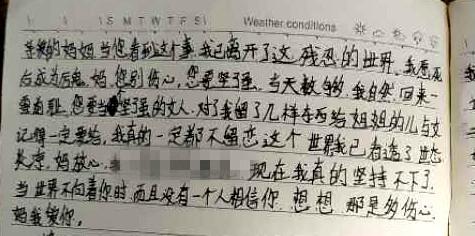 S M T W T F S Weather conditions
爱的妈妈,当您看到这个事,我已离开了这残忍的世界,我愿死
后成为厉鬼,妈,您别伤心,您要坚强,当天数够,我自然回来一
雪前耻,您要当坚强的女人,对了我留了几样东西给姐姐的儿与女
记得一定要给,我真的一定都不留恋这个世界我已看透了世态
炎凉,妈放心,现在我真的坚持不下了
当世界不向着你时,而且没有一个人相信你,想想,那是多伤心
妈我爱你.